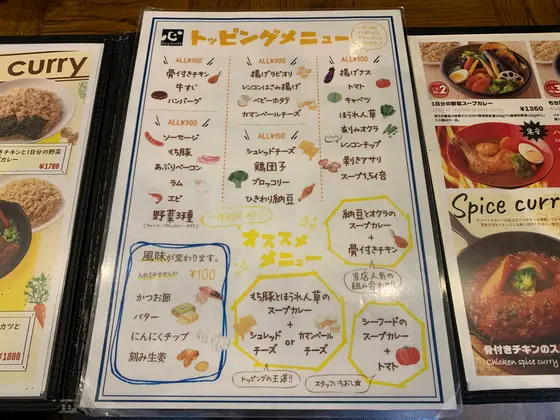 心
トッピングメニュー
ALL¥350
骨付きチキン
牛すじ
ハンバーグ
ALL¥300
ソーセージ
もち豚
あぶりベーコン
ラム
エビ
野菜3種
ALL¥200
揚げラビオリ
レンコンはさみ揚げ
ベビーホタテ
カマンベールチーズ
ALL¥150
シュレッドチーズ
鶏団子
ブロッコリー
ひきわり納豆
ALL¥100
揚げナス
トマト
キャベツ
ほうれん草
刻みオクラ
レンコンチップ
剥きアサリ
スープ1.5倍
風味が変わります。
¥100
かつお節
バター
にんにくチップ
刻み生姜
オススメ
メニュー
納豆とオクラの
スープカレー
+
骨付きチキン
当店人気の
組み合わせ!!
もち豚とほうれん草の
スープカレー
+
シュレッド
チーズ
or
カマンベール
チーズ
トッピングの王道!!
シーフードの
スープカレー
+
トマト
スタッフいちおし☆
curry
チキンと1日分の野菜
カレー
¥1700
カツと
¥1800
2
1日分の野菜スープカレー
¥1350
Spice curry
骨付きチキンのス
Chicken spice curry